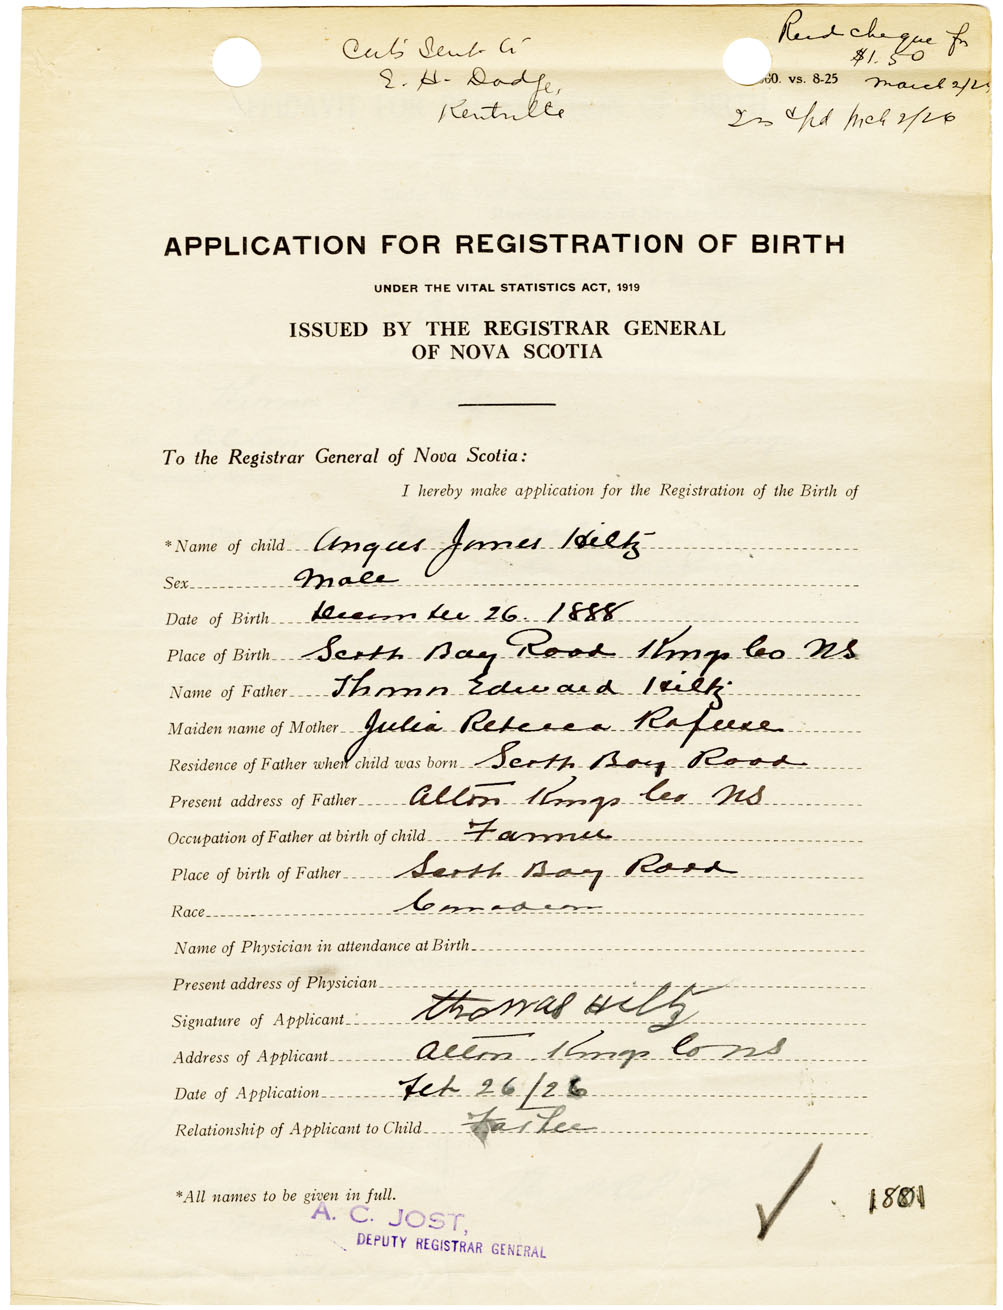 Cert's Sent to
E. H. Dodge,
Kentville
Recd cheque for
$1.50
60. vs. 8-25 March 2/26
Mch 2/26
APPLICATION FOR REGISTRATION OF BIRTH
UNDER THE VITAL STATISTICS ACT, 1919
ISSUED BY THE REGISTRAR GENERAL
OF NOVA SCOTIA
To the Registrar General of Nova Scotia:
I hereby make application for the Registration of the Birth of
*Name of child Angus James Hiltz
Sex Male
Date of Birth December 26. 1888
Place of Birth Scott Bay Road Kings Co NS
Name of Father Thomas Edward Hiltz
Maiden name of Mother Julia Rebecca Rafuse
Residence of Father when child was born Scott Bay Road
Present address of Father Alton Kings Co NS
Occupation of Father at birth of child Farmer
Place of birth of Father Scott Bay Road
Race Canadian
Name of Physician in attendance at Birth
Present address of Physician
Signature of Applicant Thomas Hiltz
Address of Applicant Alton Kings Co NS
Date of Application Feb 26/26
Relationship of Applicant to Child Father
*All names to be given in full.
A. C. JOST,
DEPUTY REGISTRAR GENERAL